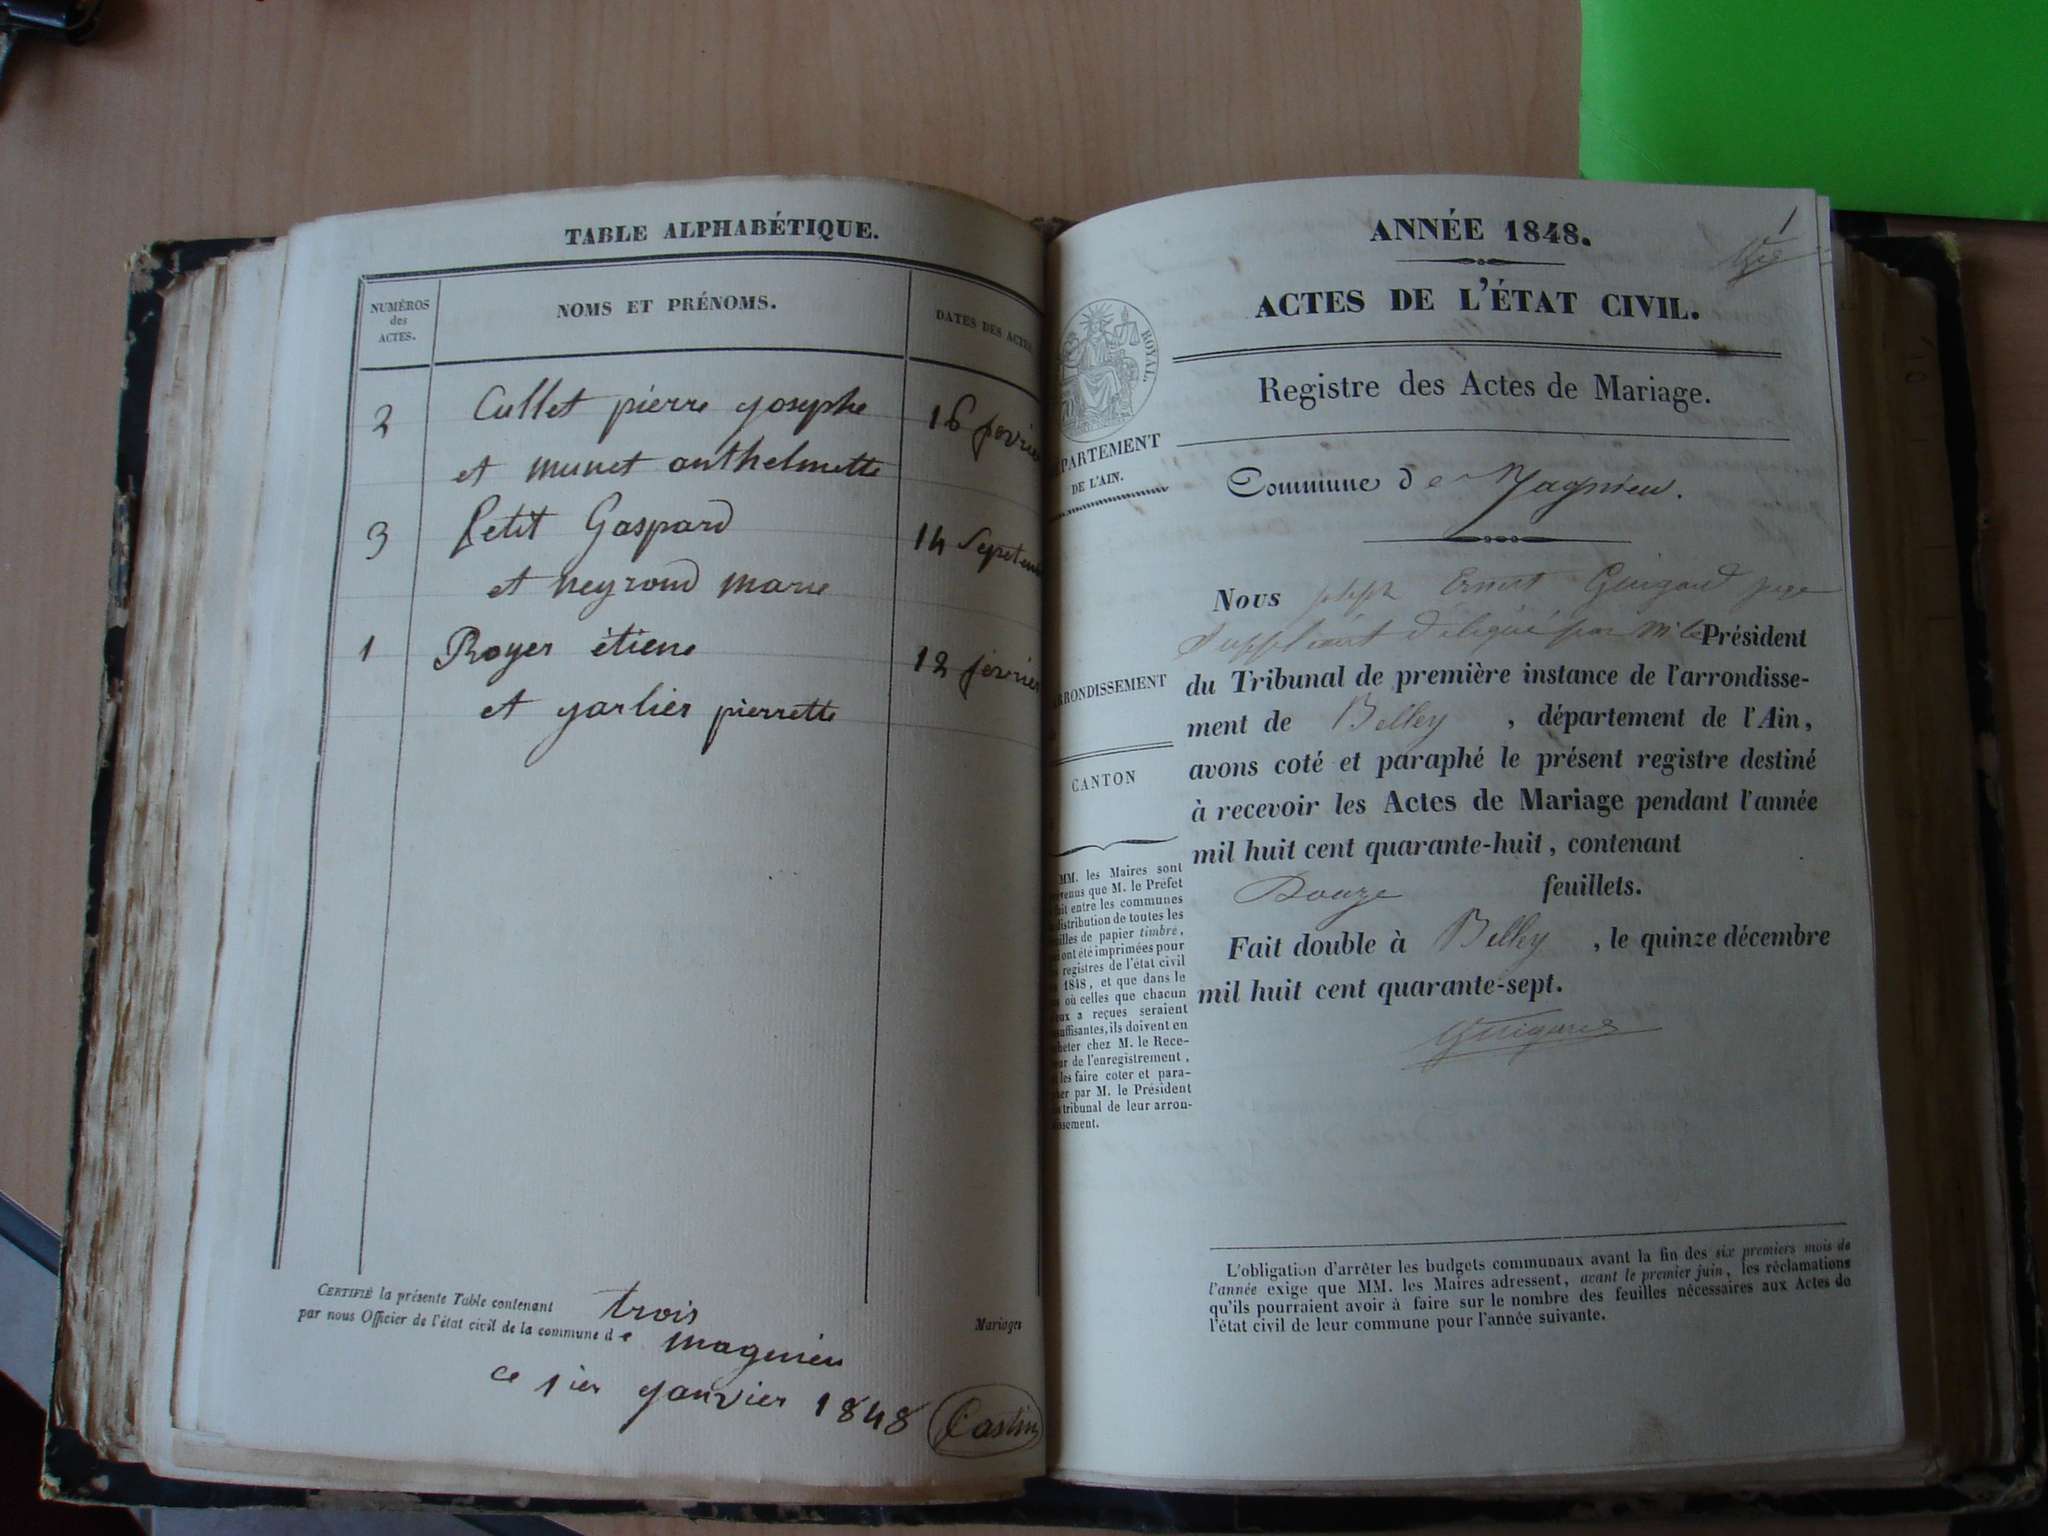 TABLE ALPHABÉTIQUE.
NUMÉROS
des
ACTES.
NOMS ET PRÉNOMS.
DATES DES ACTES
2 Cullet pierre yosephe 16 fevrie
et munet anthelmette
3 Petit Gaspard 14 Septem
et neyroud marie
1 Royer étiene 12 fevrier
et yarlier pierrette
CERTIFIÉ la présente Table contenant trois
par nous Officier de l'état civil de la commune de magnieu
Mariages
ce 1ier yanvier 1848
Castin
ANNÉE 1848.
1
ACTES DE L'ÉTAT CIVIL.
ROYAL.
Registre des Actes de Mariage.
PARTEMENT
DE L'AIN.
Commune de Magnieu.
Nous joseph Ernest Guigard juge
Suppléant délégué par Mr le Président
du Tribunal de première instance de l'arrondisse-
ment de Belley , département de l'Ain,
avons coté et paraphé le présent registre destiné
à recevoir les Actes de Mariage pendant l'année
mil huit cent quarante-huit, contenant
Douze feuillets.
Fait double à Belley , le quinze décembre
mil huit cent quarante-sept.
Guigard
RRONDISSEMENT
CANTON
MM. les Maires sont
venus que M. le Préfet
fait entre les communes
distribution de toutes les
illes de papier timbré,
i ont été imprimées pour
s registres de l'état civil
1848, et que dans le
s où celles que chacun
eux a reçues seraient
suffisantes, ils doivent en
heter chez M. le Rece-
ur de l'enregistrement,
les faire coter et para-
her par M. le Président
tribunal de leur arron-
issement.
L'obligation d'arrêter les budgets communaux avant la fin des six premiers mois de
l'année exige que MM. les Maires adressent, avant le premier juin, les réclamations
qu'ils pourraient avoir à faire sur le nombre des feuilles nécessaires aux Actes de
l'état civil de leur commune pour l'année suivante.